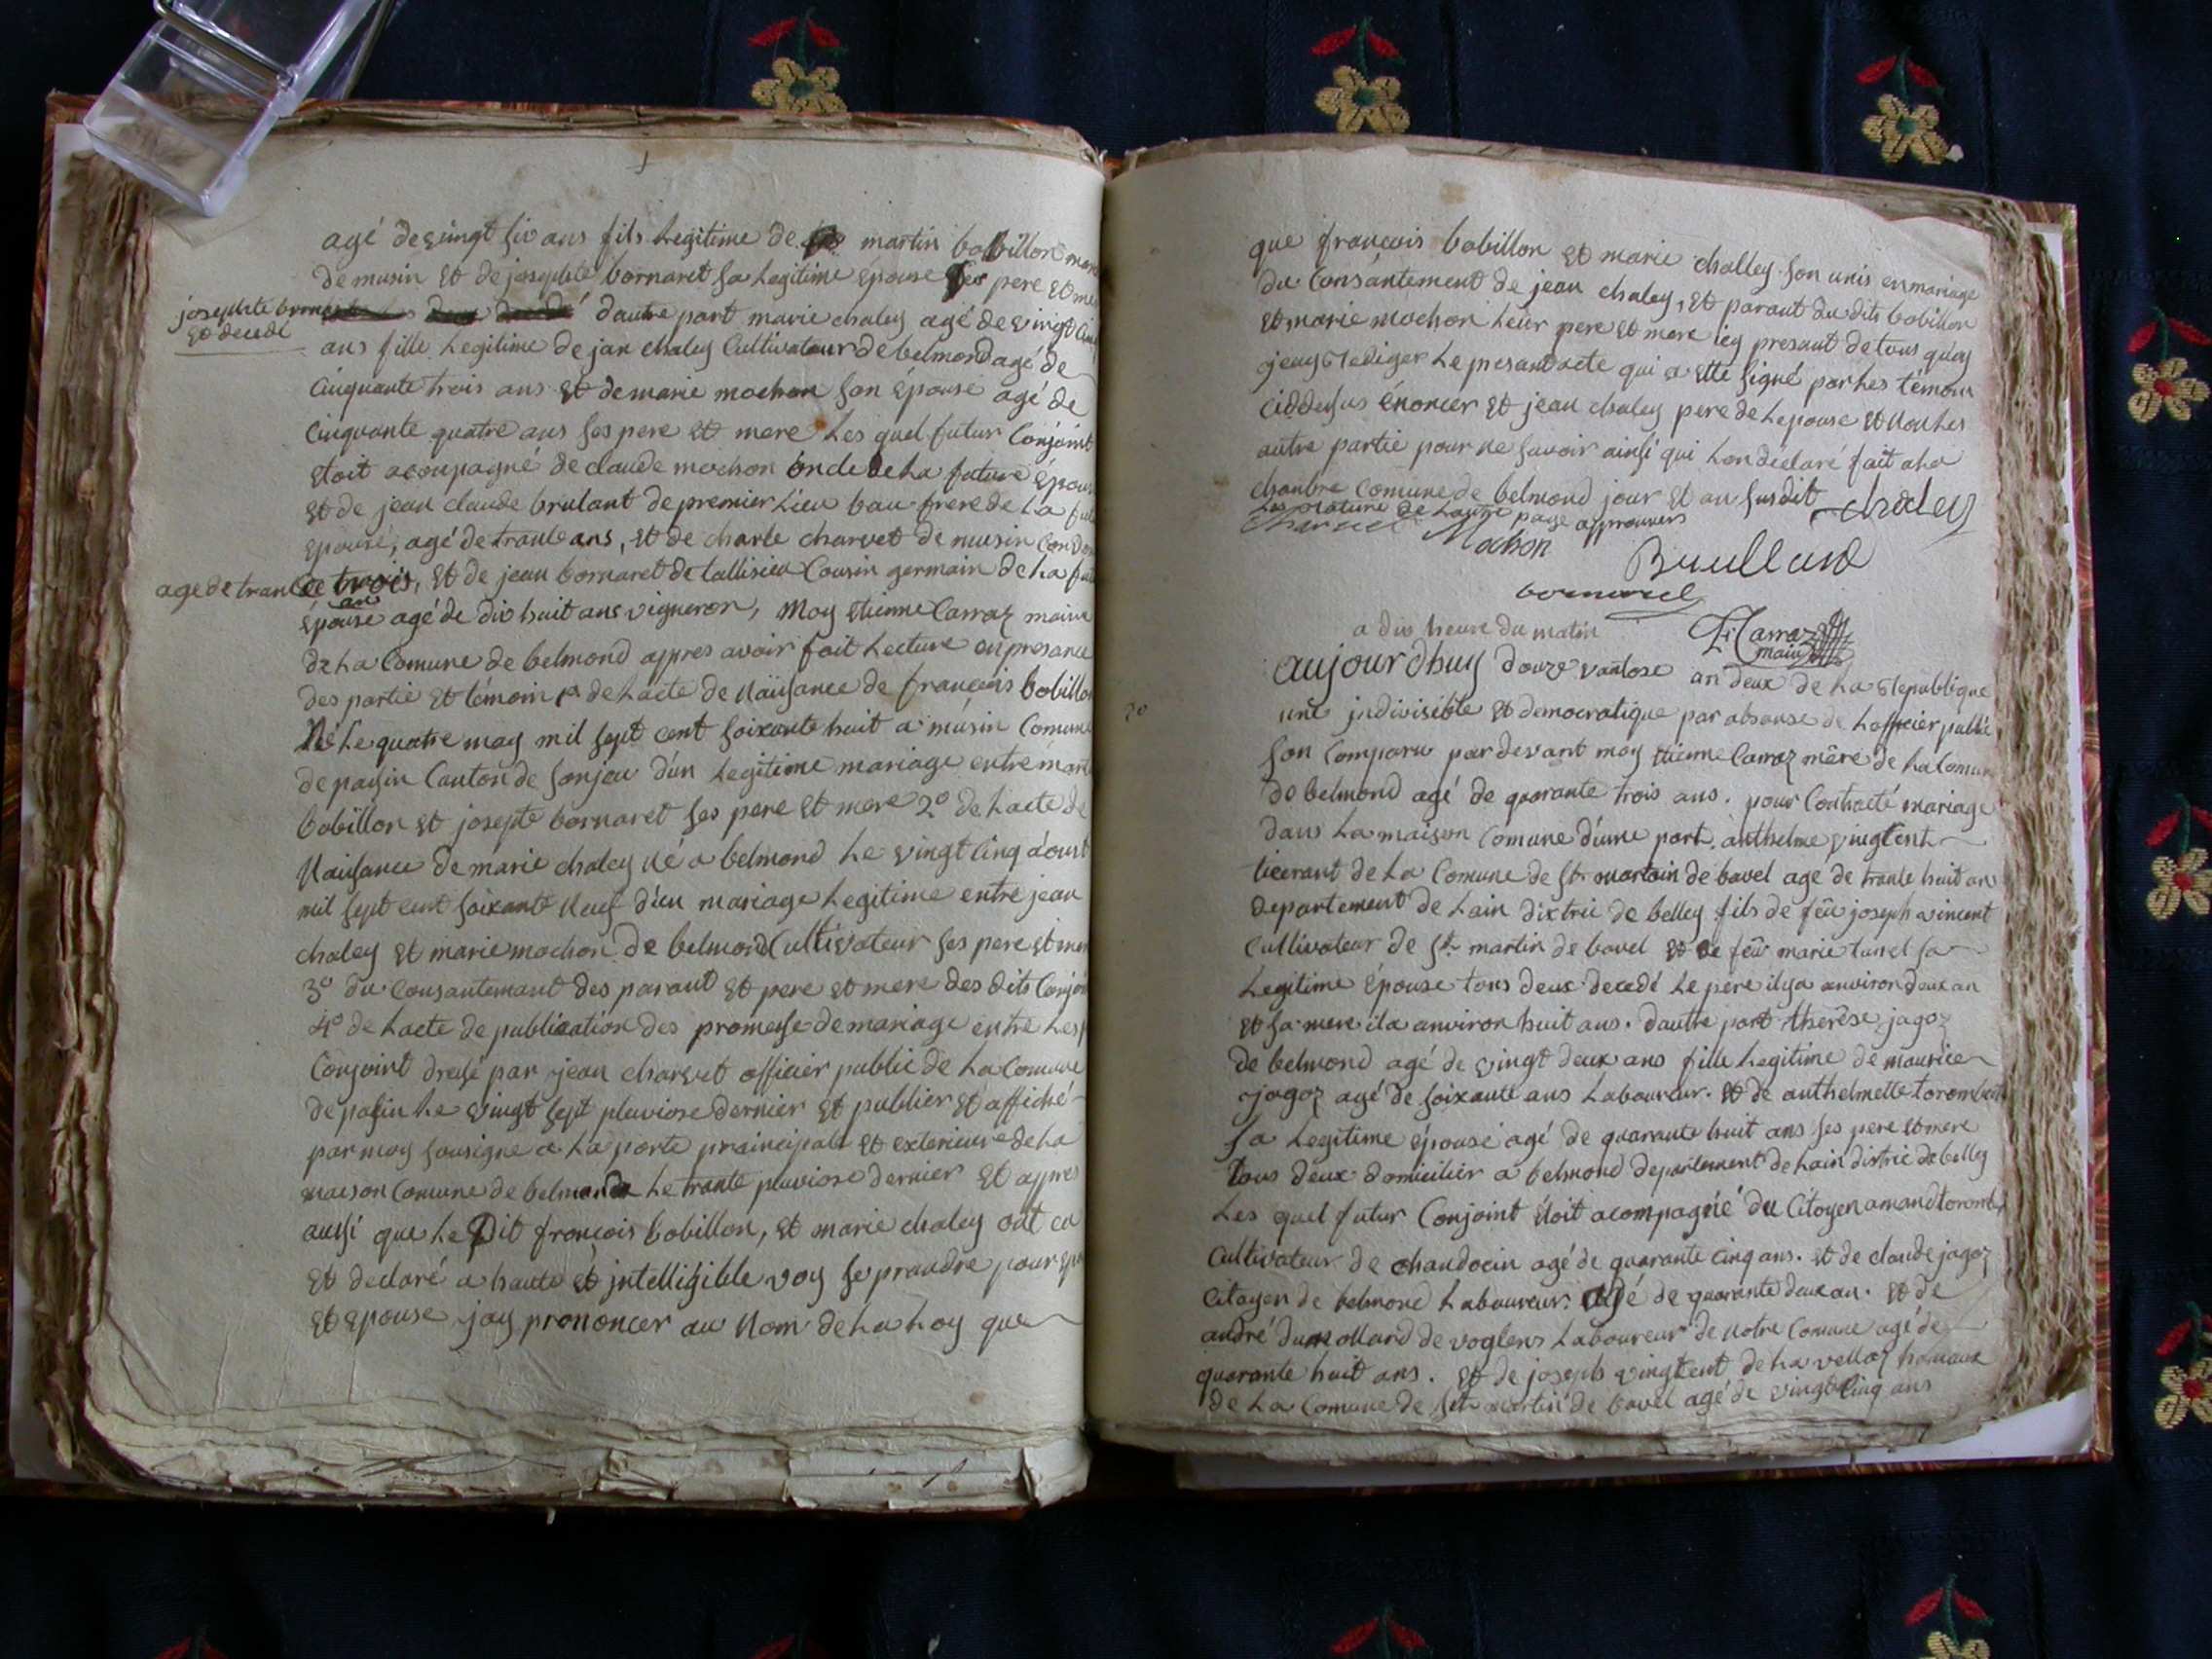 agé de vingt six ans fils Legitime de martin bobillon
de musin et de josephte bornaret sa Legitime épouse ses pere et
josephte
et decedé
d'autre part marie chaley agé de vingt cinq
ans fille Legitime de jan chaley Cultivateur de belmond agé de
Cinquante trois ans et de marie mochon son épouse agé de
Cinquante quatre ans ses pere et mere Les quel futur Conjoint
etoit acompagné de claude mochon oncle de La future épouse
et de jean claude brulant de premier Lieu bau frere de La
épouse, agé de trante ans, et de charle charvet de musin
age de trante trois, et de jean bornaret de tallisieu Cousin germain de La
an
épouse agé de dix huit ans vigneron, Moy etienne Carraz maire
de La Comune de belmond appres avoir fait Lecture en presance
des partie et témoin de Lacte de Naissance de françois bobillon
Né Le quatre may mil sept cent soixante huit a musin Comune
de pasin Canton de Sonjeu d'un Legitime mariage entre
bobillon et josepte bornaret ses pere et mere 2° de Lacte de
Naissance de marie chaley Né a belmond Le vingt cinq d'oust
mil sept cent soixante Neuf d'un mariage Legitime entre jean
chaley et marie mochon de belmond Cultivateur ses pere et mere
3° du Consantemant des parant et pere et mere des dits
4° de Lacte de publication des promesse de mariage entre Les
Conjoint dressé par jean charvet officier public de La Comune
de pasin Le vingt sept pluviose dernier et publier et affiché
par moy sousigné a La porte principale et exterieure de La
maison Comune de belmond Le trante pluviose dernier et appres
aussi que Le dit françois bobillon, et marie chaley ont eu
et declaré a haute et jntelligible voy se prandre pour
et epouse jay prononcer au Nom de La Loy que
que françois bobillon et marie challey son unis en mariage
du Consantement de jean chaley, et parant du dits bobillon
et marie mochon Leur pere et mere icy presant de tous quoy
jeay rediger Le presant acte qui a etté signé par Les temoin
ciddessus énoncer et jean chaley pere de Lepouse et Non Les
autre partie pour ne savoir ainsi qui Lon déclaré fait a La
chambre Comune de belmond jour et an susdit chaley
Les rature de Lautre page approuvers
charvet Mochon
Brulland
bornaret
a dix heure du matin
E Carraz
maire
aujourdhuy douze vantose an deux de La republique
une jndivisible et democratique par absanse de Lofficier public
son Comparu par devant moy etienne Carraz mère de La Comune
de belmond agé de quarante trois ans. pour Contracté mariage
dans La maison Comune d'une part anthelme vingtent
ticerant de La Comune de St. martain de bavel age de trante huit an
departement de Lain dixtric de belley fils de feu joseph vincent
Cultivateur de St. martin de bavel et de feu marie tunel sa
Legitime épouse tous deux decedé Le pere il ya anviron deux an
et sa mere il a anviron huit ans. dautre part therèse jagoz
de belmond agé de vingt deux ans fille Legitime de maurice
jagoz agé de soixante ans Laboureur. et de anthelmette
sa Legitime épouse agé de quarante huit ans ses pere et mere
tous deux domicilier a belmond departement de Lain distric de belley
Les quel futur Conjoint étoit acompagné du Citoyen amand
Cultivateur de chandocin agé de quarante cinq ans. et de claude jagoz
Citoyen de belmond Laboureur. Agé de quarante deux an. et de
andré dumollard de voglens Laboureur de Notre Comune agé de
quarante huit ans. et de joseph vingtent de La vellaz hamaux
de La Comune de St martin de bavel agé de vingt cinq ans